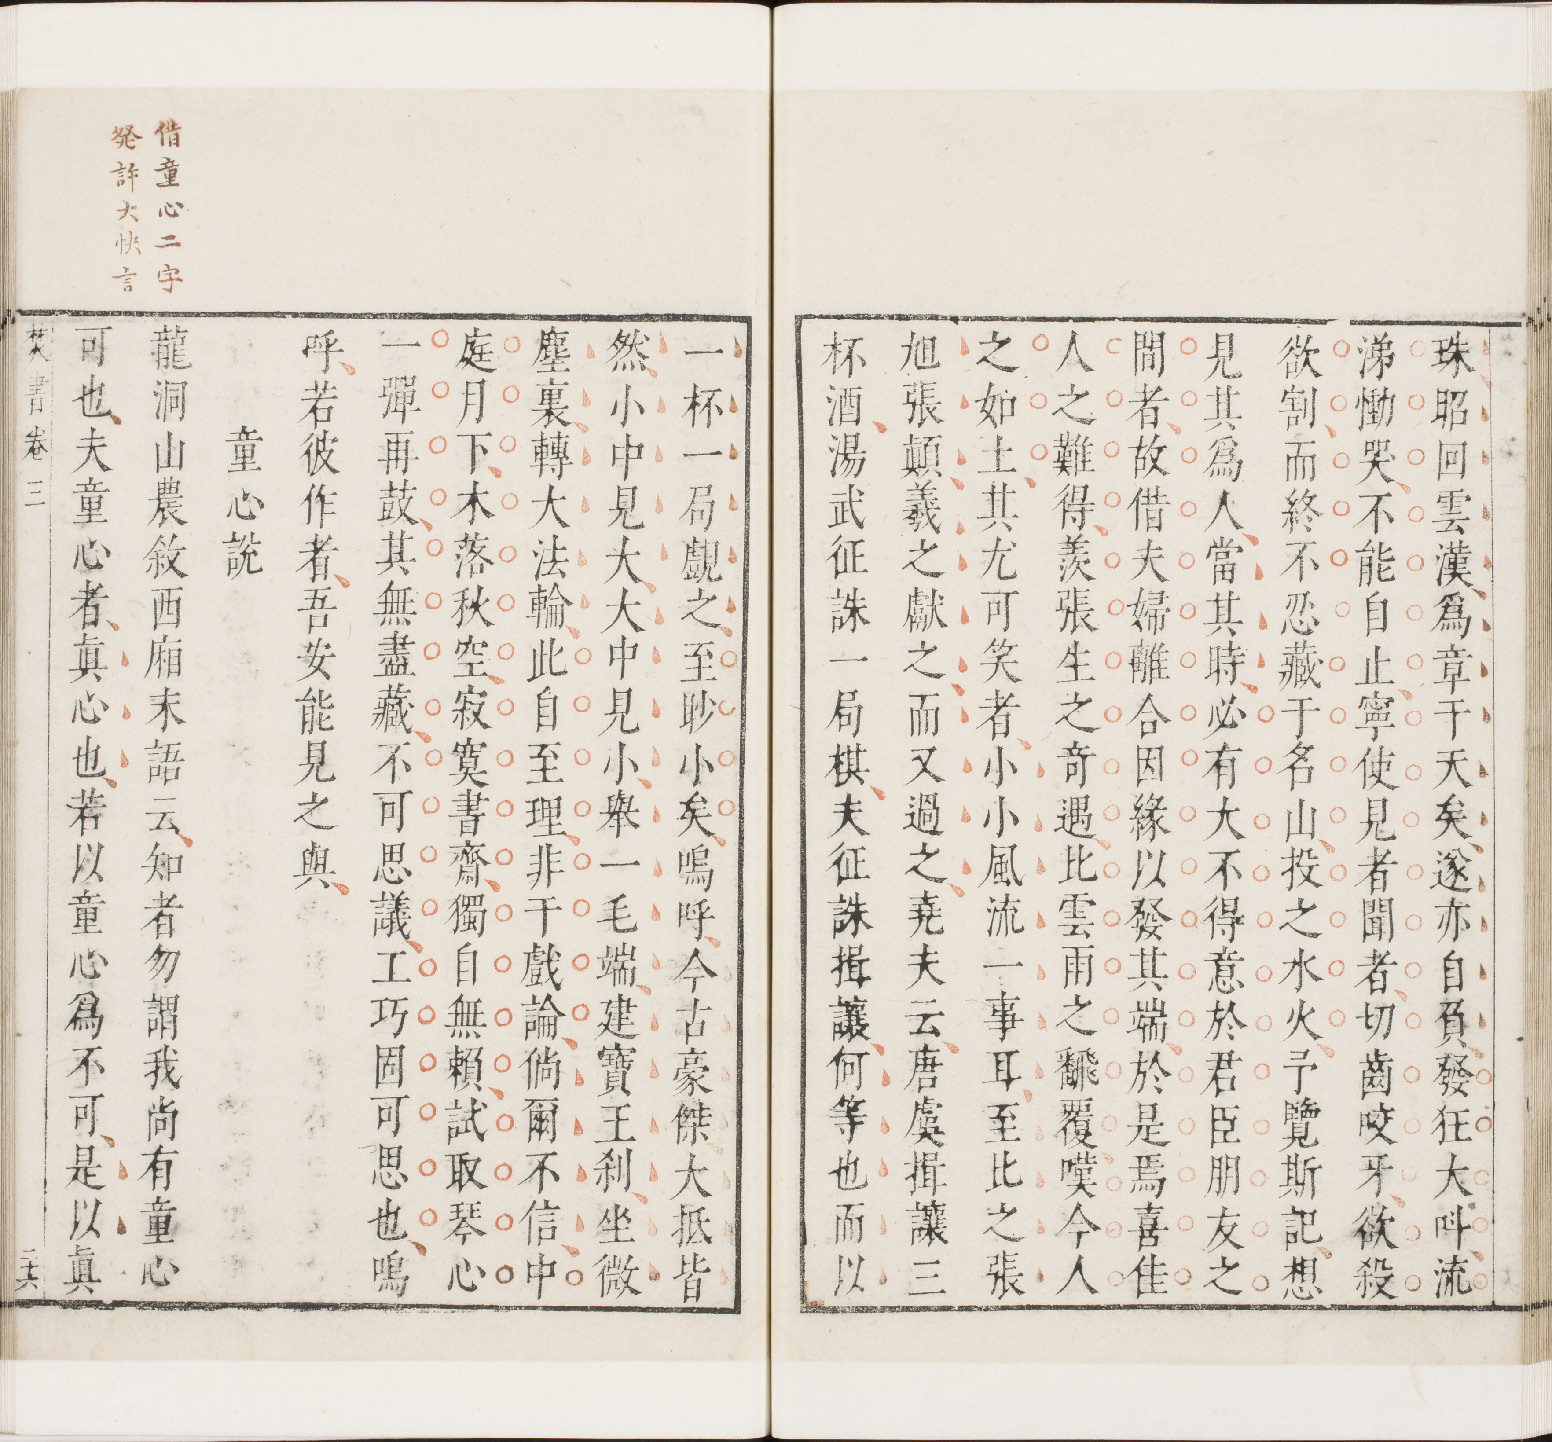 珠昭回雲漢爲章于天矣遂亦自負發狂大呌流
涕慟哭不能自止寧使見者聞者切齒咬牙欲殺
欲割而終不忍藏于名山投之水火予覽斯記想
見其爲人當其時必有大不得意於君臣朋友之
間者故借夫婦離合因緣以發其端於是焉喜佳
人之難得羨張生之竒遇比雲雨之飜覆嘆今人
之如土其尤可笑者小小風流一事耳至比之張
旭張顛羲之獻之而又過之堯夫云唐虞揖讓三
杯酒湯武征誅一局棋夫征誅揖讓何等也而以
一杯一局覷之至眇小矣嗚呼今古豪傑大抵皆
然小中見大大中見小舉一毛端建寶王刹坐微
塵裏轉大法輪此自至理非干戲論倘爾不信中
庭月下木落秋空寂寞書齋獨自無賴試取琴心
一彈再鼓其無盡藏不可思議工巧固可思也嗚
呼若彼作者吾安能見之與
童心說
龍洞山農敘西廂末語云知者勿謂我尚有童心
可也夫童心者眞心也若以童心爲不可是以眞
借童心二字
發許大快言
焚書卷三
二六